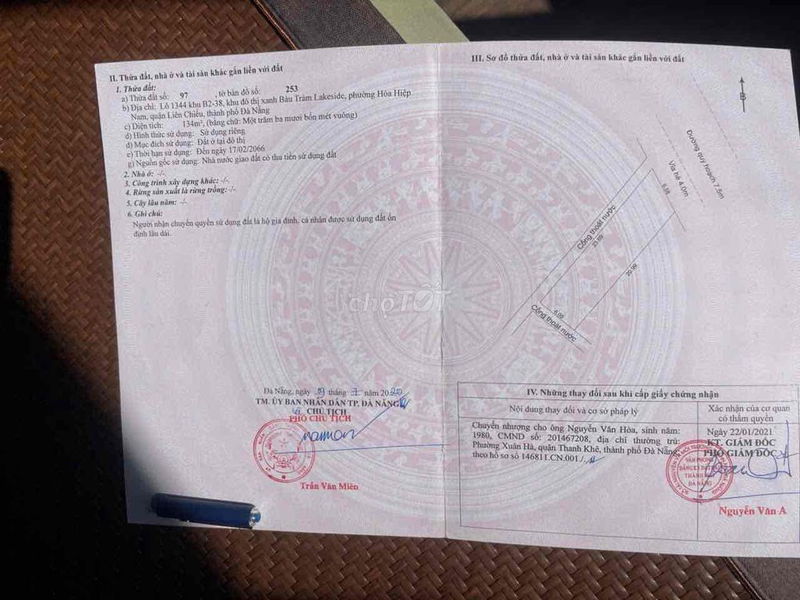 II. Thửa đất, nhà ở và tài sản khác gắn liền với đất
1. Thửa đất:
a) Thửa đất số: 97 , tờ bản đồ số: 253
b) Địa chỉ: Lô 1344 khu B2-38, khu đô thị xanh Bàu Tràm Lakeside, phường Hòa Hiệp
Nam, quận Liên Chiểu, thành phố Đà Nẵng
c) Diện tích: 134m², (bằng chữ: Một trăm ba mươi bốn mét vuông)
d) Hình thức sử dụng: Sử dụng riêng
đ) Mục đích sử dụng: Đất ở tại đô thị
e) Thời hạn sử dụng: Đến ngày 17/02/2066
g) Nguồn gốc sử dụng: Nhà nước giao đất có thu tiền sử dụng đất
2. Nhà ở: -/-
3. Công trình xây dựng khác: -/-
4. Rừng sản xuất là rừng trồng: -/-
5. Cây lâu năm: -/-
6. Ghi chú:
Người nhận chuyển quyền sử dụng đất là hộ gia đình, cá nhân được sử dụng đất ổn
định lâu dài.
Đà Nẵng, ngày tháng năm 2020
TM. ỦY BAN NHÂN DÂN TP. ĐÀ NẴNG
CHỦ TỊCH
PHÓ CHỦ TỊCH
Trần Văn Miên
chợTỐT
III. Sơ đồ thửa đất, nhà ở và tài sản khác gắn liền với đất
B
Đường quy hoạch 7.5m
Vỉa hè 4.0m
Cống thoát nước
20.99
Cống thoát nước
IV. Những thay đổi sau khi cấp giấy chứng nhận
Nội dung thay đổi và cơ sở pháp lý
Xác nhận của cơ quan
có thẩm quyền
Chuyển nhượng cho ông Nguyễn Văn Hòa, sinh năm:
1980, CMND số: 201467208, địa chỉ thường trú:
Phường Xuân Hà, quận Thanh Khê, thành phố Đà Nẵng,
theo hồ sơ số 14681
Ngày 22/01/2021
KT. GIÁM ĐỐC
PHÓ GIÁM ĐỐC
Nguyễn Văn A